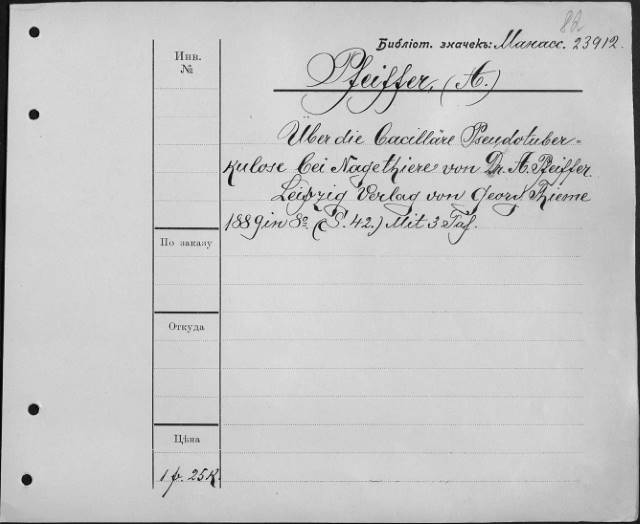 82
Библіот. значекъ: Манасс. 23912.
Инв.
№
Pfeiffer, (A.)
Über die Cacilläre Pseudotuber=
kulose bei Nagethiere von Dr. A. Pfeiffer.
Leipzig Verlag von Georg Thieme
1889 in 8º (S. 42.) Mit 3 Taf.
По заказу
Откуда
Цѣна
1 р. 25 к.